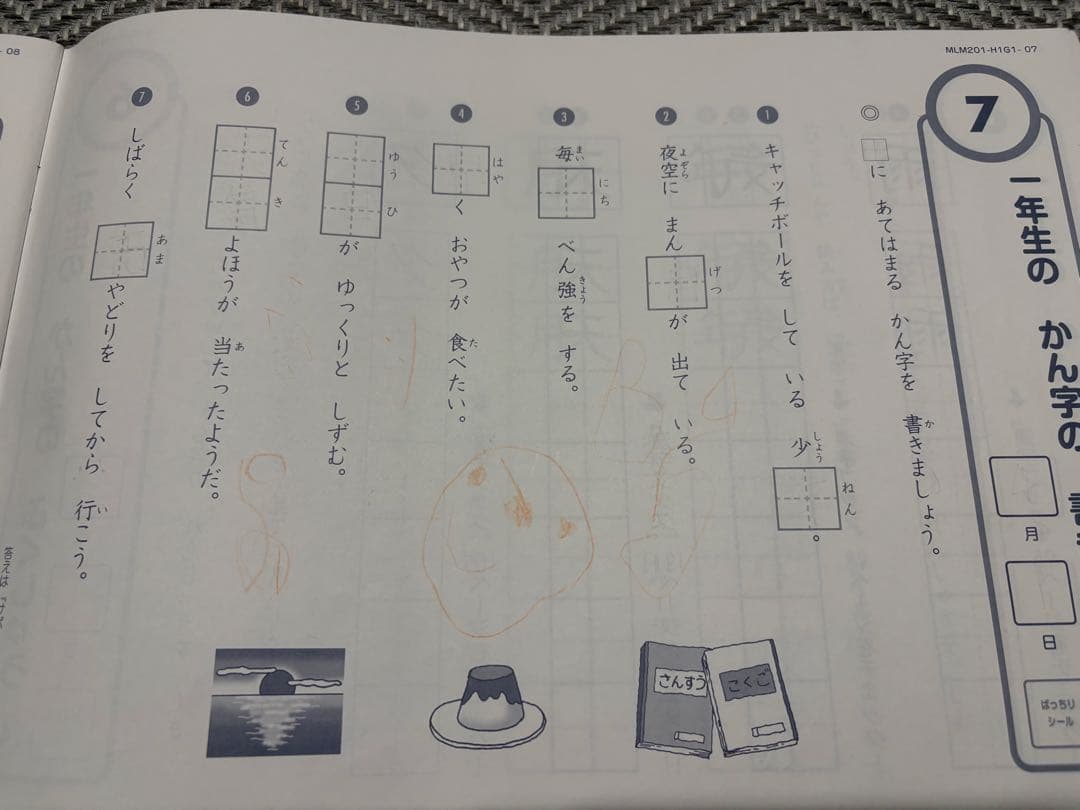 MLM201-H1G1-07
7
一年生の かん字の 書き
月
日
ばっちり
シール
◎ □に あてはまる かん字を 書きましょう。
か
1 キャッチボールを して いる 少□。
しょう ねん
2 夜空に まん□が 出て いる。
よぞら げつ
3 毎□ べん強を する。
まい にち きょう
4 □く おやつが 食べたい。
はや た
5 □□が ゆっくりと しずむ。
ゆう ひ
6 □□よほうが 当たったようだ。
てん き あ
7 しばらく □やどりを してから 行こう。
あま い
さんすう
こくご
答えは
- 08